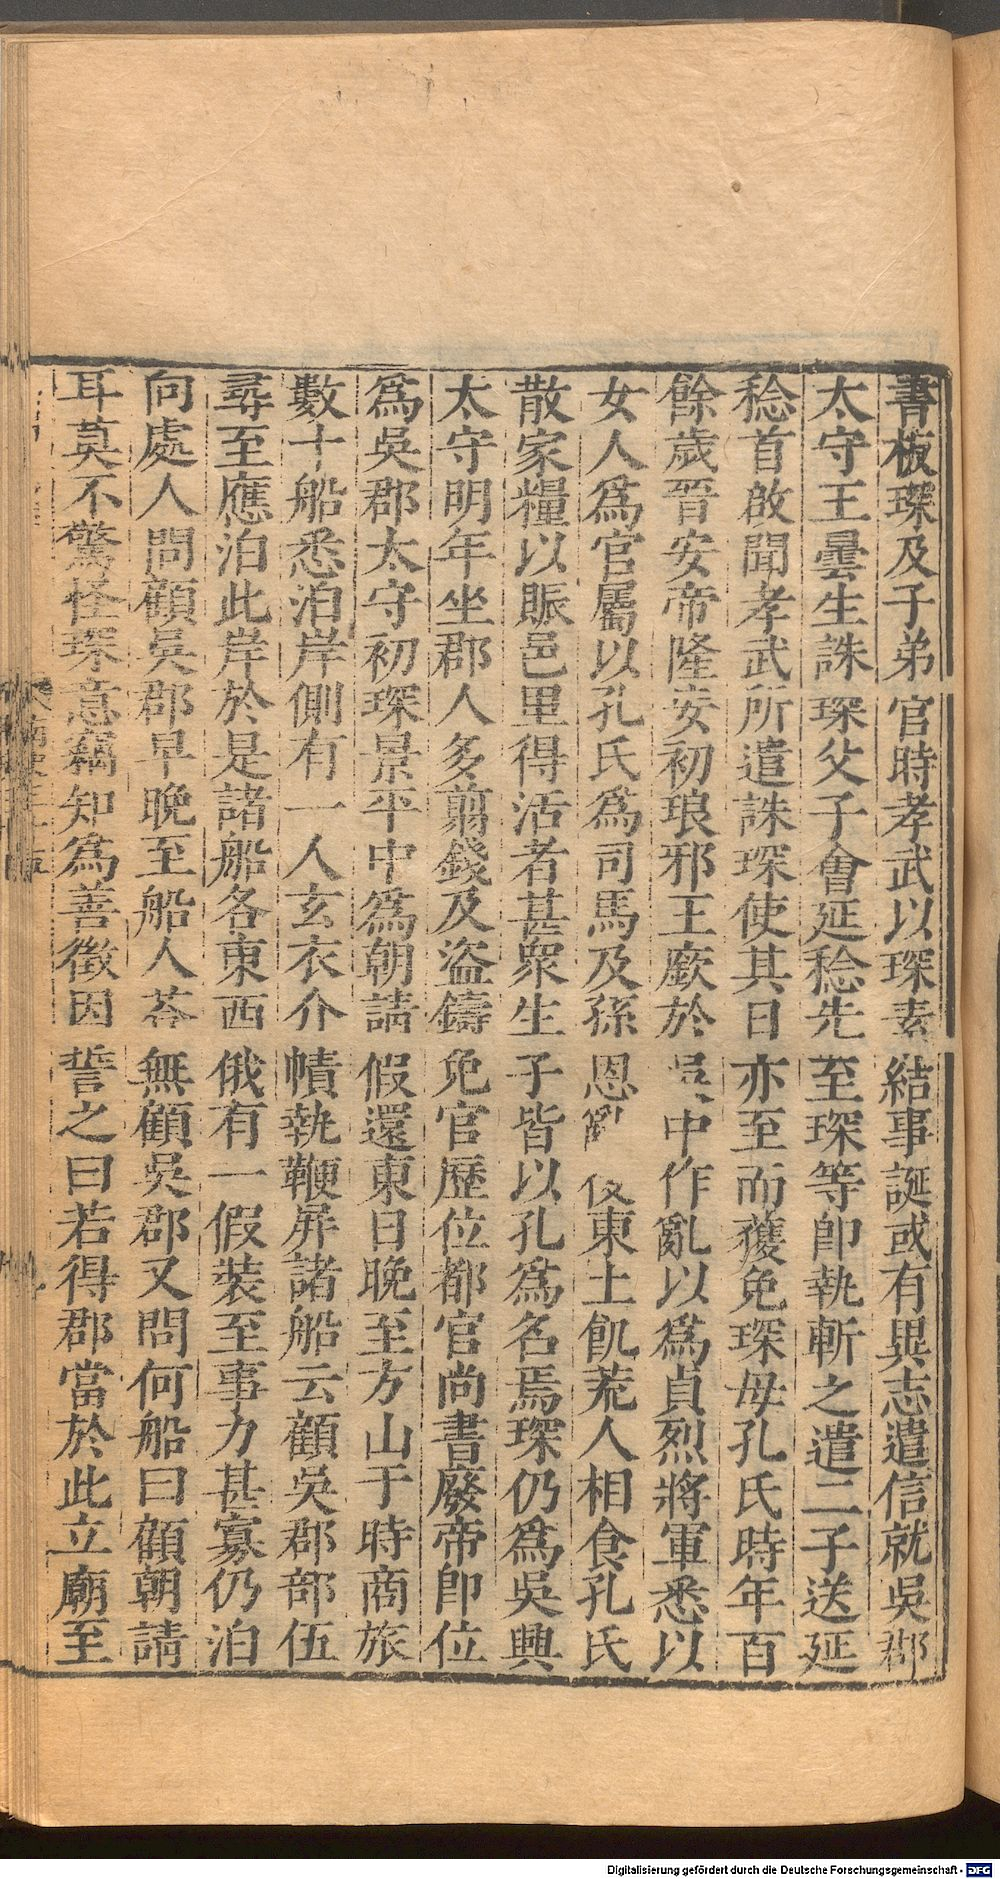 書板琛及子弟官時孝武以琛素結事誕或有異志遣信就吳郡
太守王曇生誅琛父子會延稔先至琛等卽執斬之遣二子送延
稔首啟聞孝武所遣誅琛使其日亦至而獲免琛母孔氏時年百
餘歲晉安帝隆安初琅邪王廞於吳中作亂以爲貞烈將軍悉以
女人爲官屬以孔氏爲司馬及孫恩亂後東土飢荒人相食孔氏
散家糧以賑邑里得活者甚衆生子皆以孔爲名焉琛仍爲吳興
太守明年坐郡人多剪錢及盜鑄免官歷位都官尚書廢帝卽位
爲吳郡太守初琛景平中爲朝請假還東日晚至方山于時商旅
數十船悉泊岸側有一人玄衣介幘執鞭屏諸船云顧吳郡部伍
尋至應泊此岸於是諸船各東西俄有一假裝至事力甚寡仍泊
向處人問顧吳郡早晚至船人荅無顧吳郡又問何船曰顧朝請
耳莫不驚怪琛意竊知爲善徵因誓之曰若得郡當於此立廟至
Digitalisierung gefördert durch die Deutsche Forschungsgemeinschaft - DFG